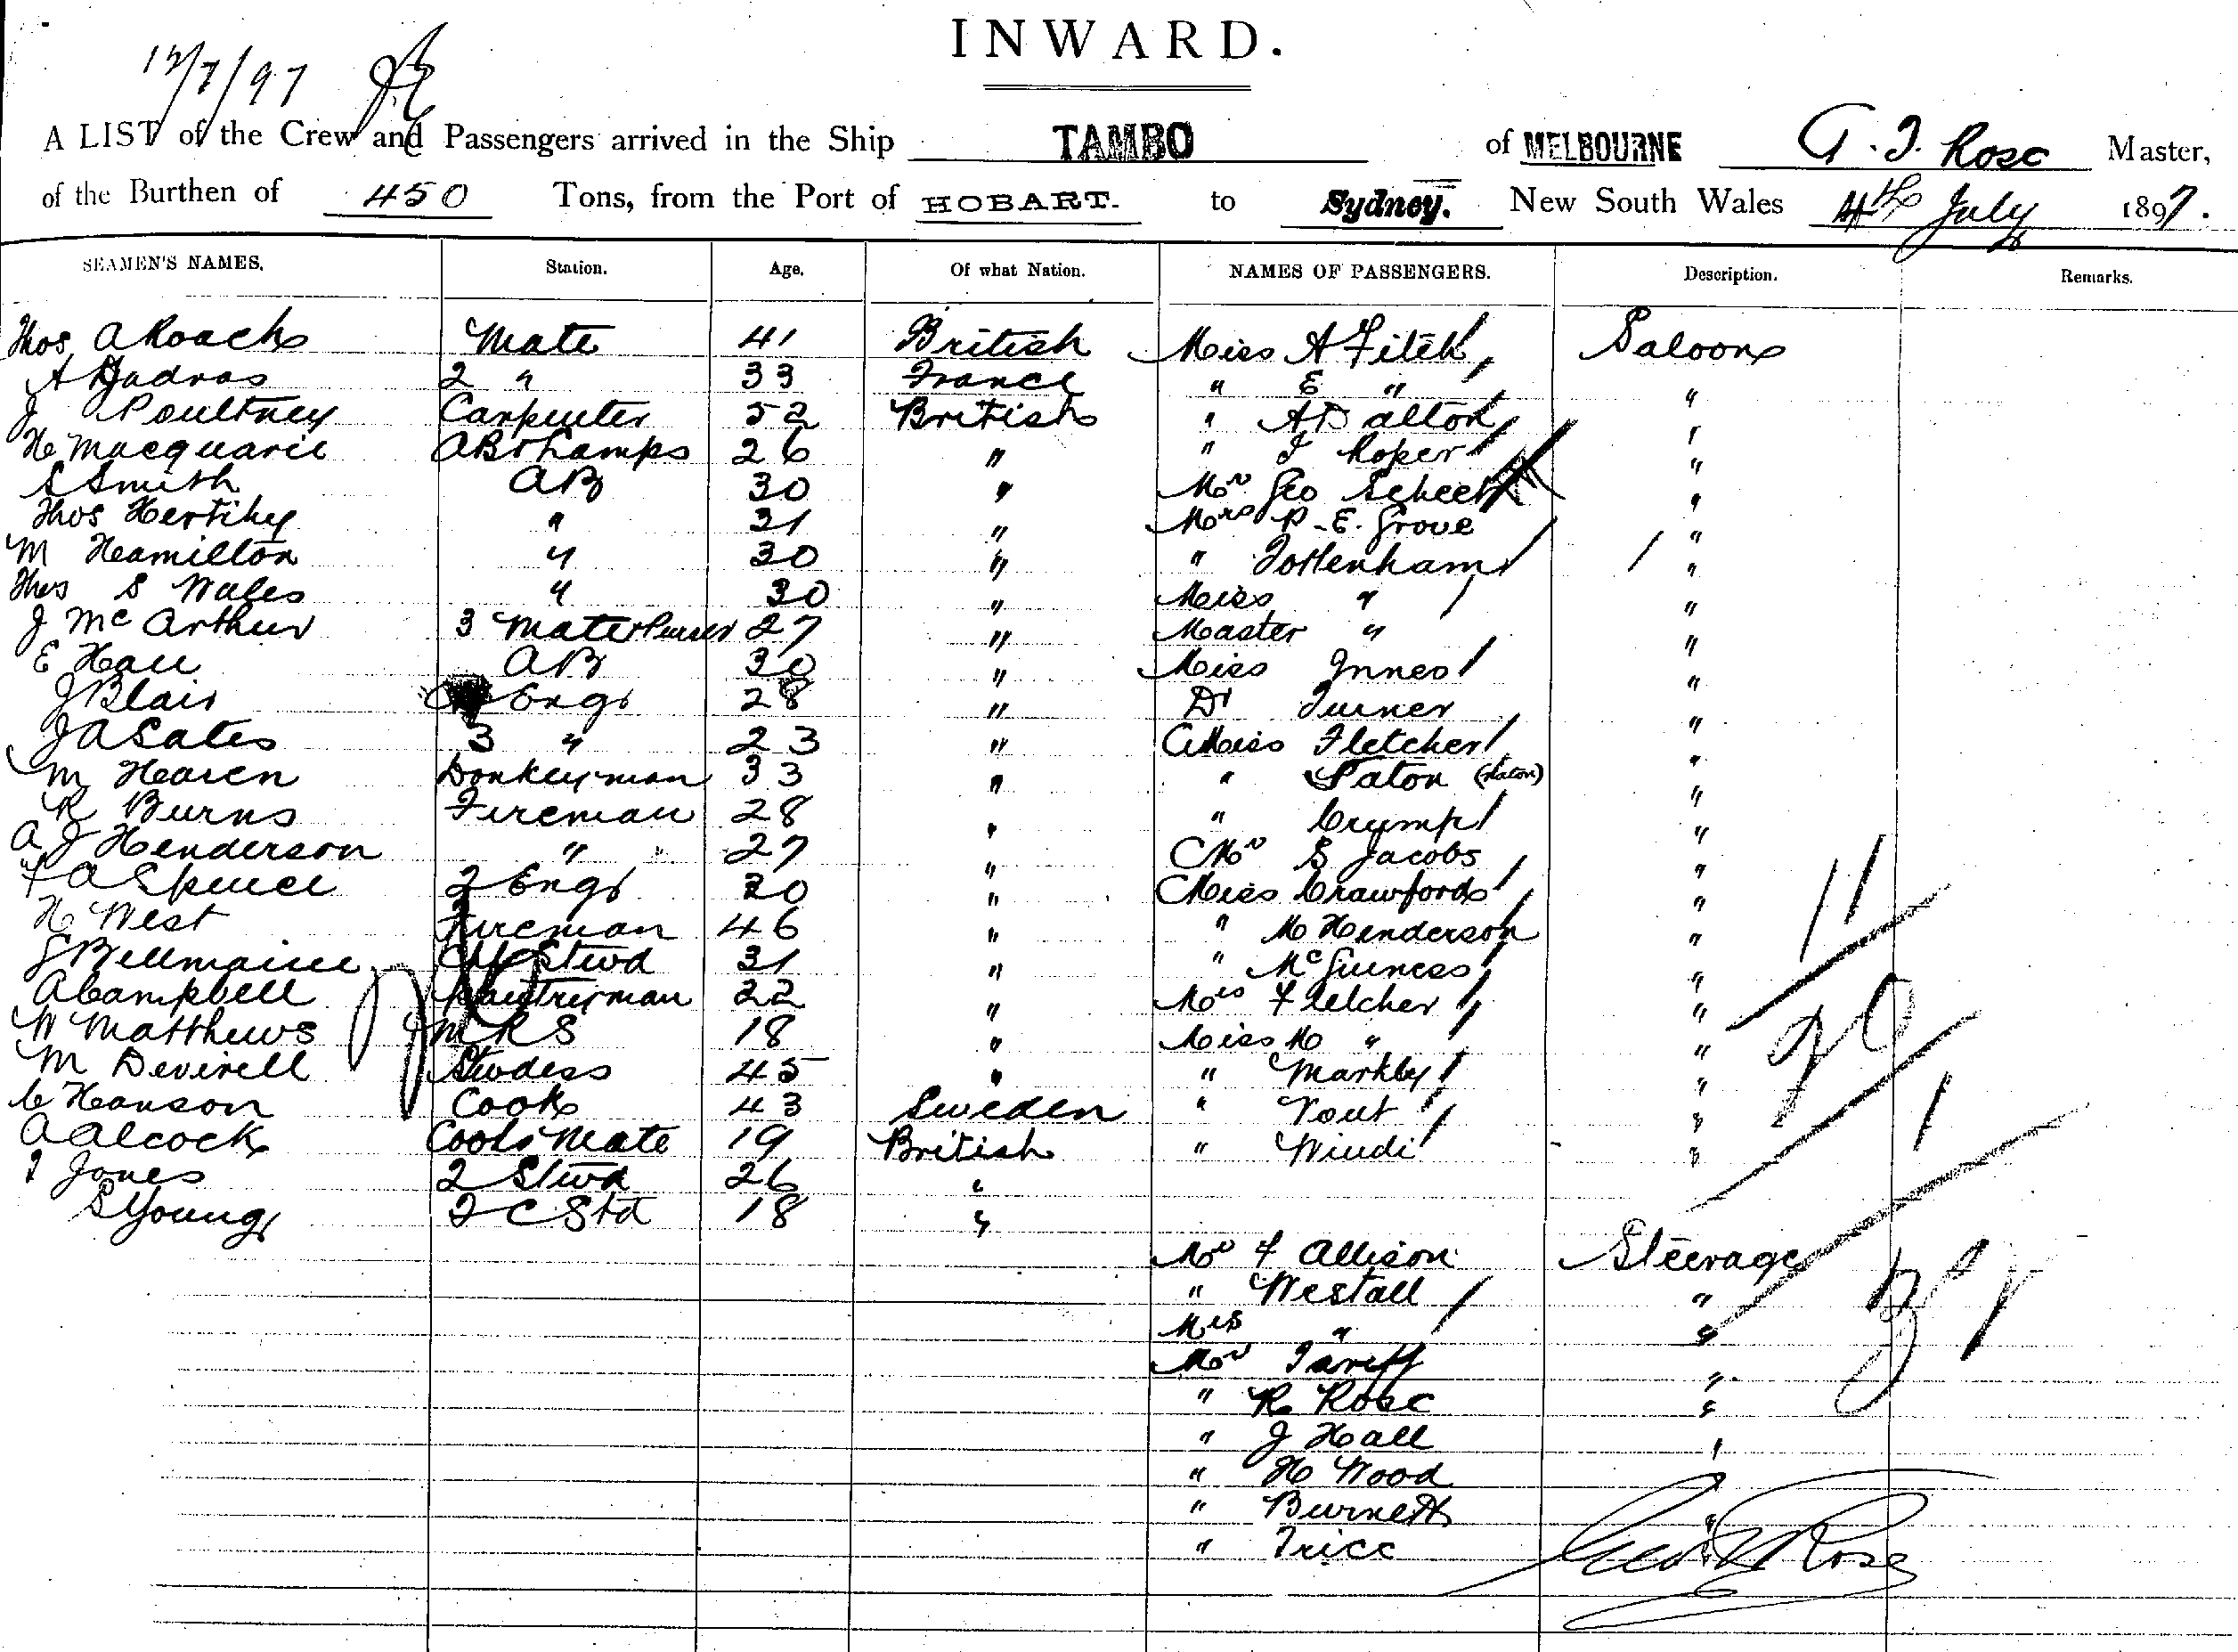 INWARD.
12/7/97
A LIST of the Crew and Passengers arrived in the Ship TAMBO of MELBOURNE G. J. Rose Master,
of the Burthen of 450 Tons, from the Port of HOBART. to Sydney. New South Wales 4th July 1897.
SEAMEN'S NAMES. Station. Age. Of what Nation. NAMES OF PASSENGERS. Description. Remarks.
Thos A Roach Mate 41 British Miss A Fitch Saloon
A 2 " 33 France " E " "
J Poultney Carpenter 52 British " A Dalton "
H Macquarie AB & Lamps 26 " " J Roper "
S Smith AB 30 " Mr Geo "
Thos Hertihy " 31 " Mrs P. E. Grove "
M Hamilton " 30 " " Tottenham "
Thos S Wales " 30 " Miss " "
J McArthur 3 Mate & Purser 27 " Master " "
E Hall AB 30 " Miss Innes "
J Blair Engr 28 " Dr Turner "
J A Bates 3 " 23 " Miss Fletcher "
M Haren Donkeyman 33 " " Paton "
R Burns Fireman 28 " " Crump "
A J Henderson " 27 " Mr S Jacobs "
F A Spencer 2 Engr 30 " Miss Crawford "
H West Fireman 46 " " M Henderson "
Ch Stwd 31 " " McGuiness "
A Campbell Pantryman 22 " Mrs Fletcher "
W Matthews M R S 18 " Miss M " "
M Deverell Stwdess 45 " " Markby "
C Hanson Cook 43 Sweden " Yout "
A Alcock Cooks Mate 19 British " "
J Jones 2 Stwd 26 "
S Young 2 C Std 18 "
Mr F Allison Steerage
" Westall "
Mrs " "
Mr "
" R Rose "
" J Hall "
" H Wood
" Burnett "
" Trice
11
20
1
Geo J Rose